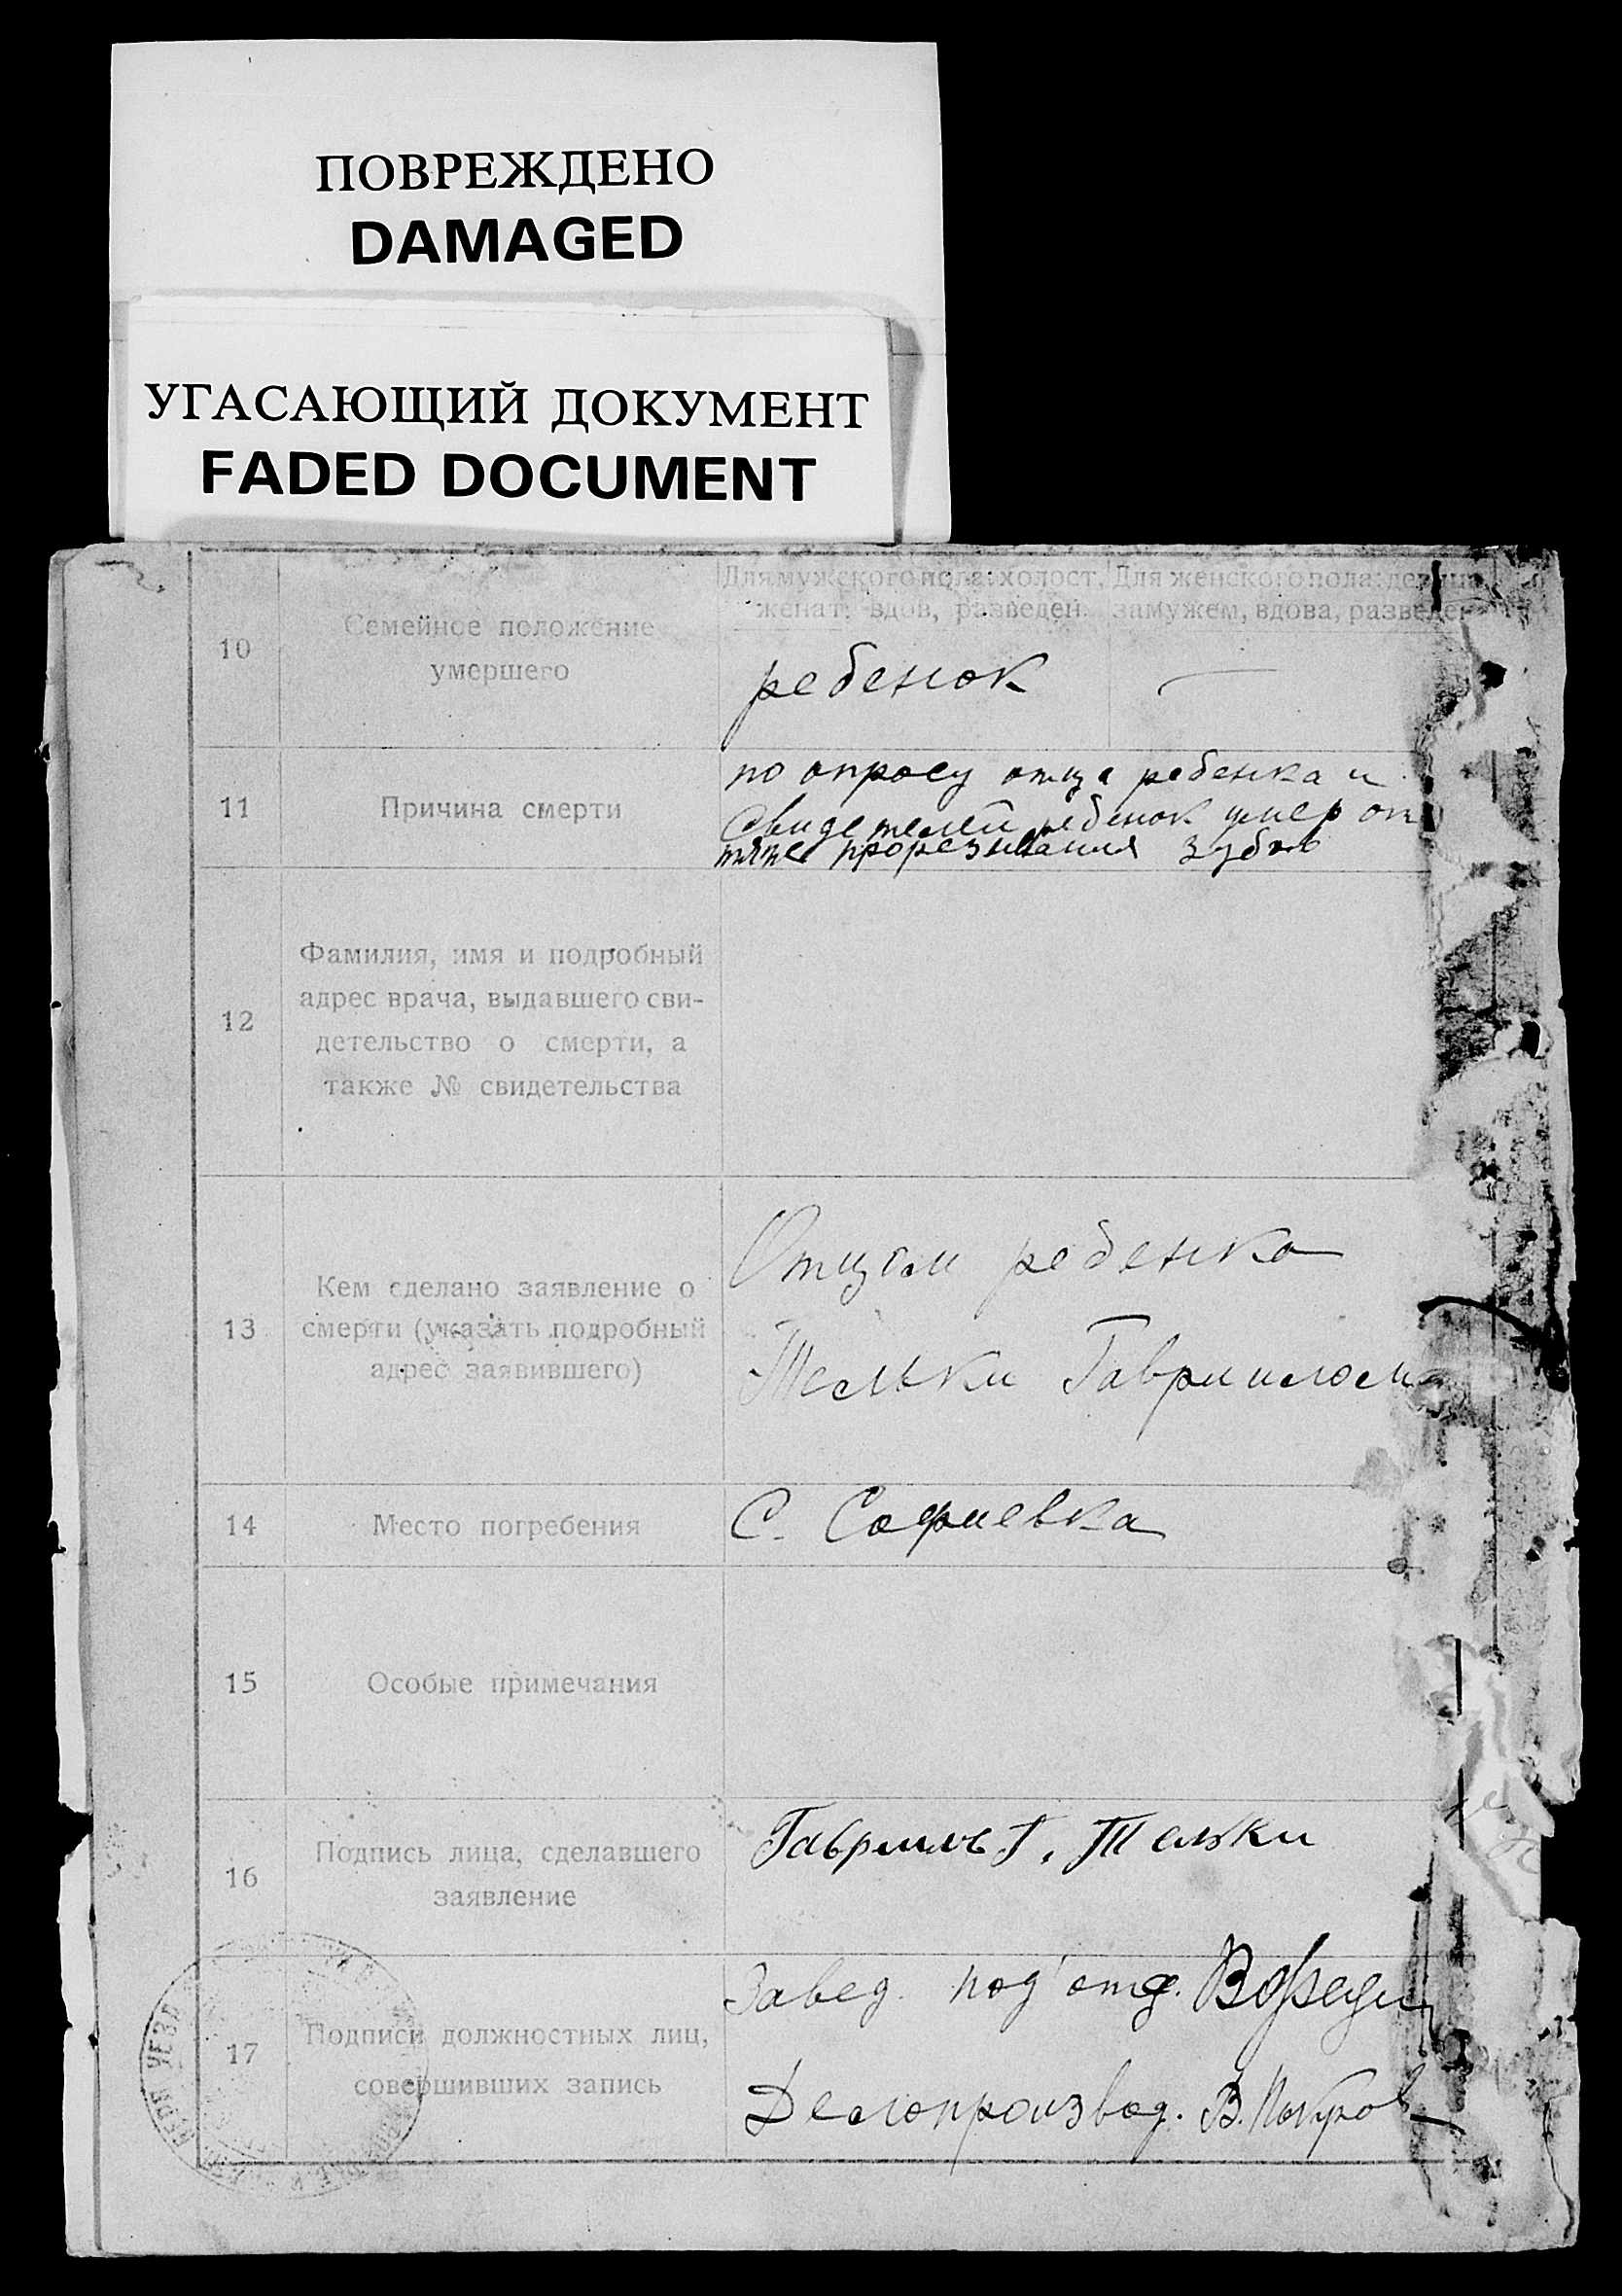 ПОВРЕЖДЕНО
DAMAGED
УГАСАЮЩИЙ ДОКУМЕНТ
FADED DOCUMENT
10
Семейное положение
умершего
Для мужского пола: холост,
женат, вдов, разведен.
Для женского пола:
замужем, вдова,
ребенок
—
11
Причина смерти
по опросу отца ребенка и
свидетелей ребенок умер от
прорезывания зубов
12
Фамилия, имя и подробный
адрес врача, выдавшего сви-
детельство о смерти, а
также № свидетельства
13
Кем сделано заявление о
смерти (указать подробный
адрес заявившего)
Отцом ребенка
Тельки Гавриилом
14
Место погребения
С. Софиевка
15
Особые примечания
16
Подпись лица, сделавшего
заявление
Гавриилъ Г. Тельки
17
Подписи должностных лиц,
совершивших запись
Завед. под'отд.
Делопроизвод. В.
УЕЗД